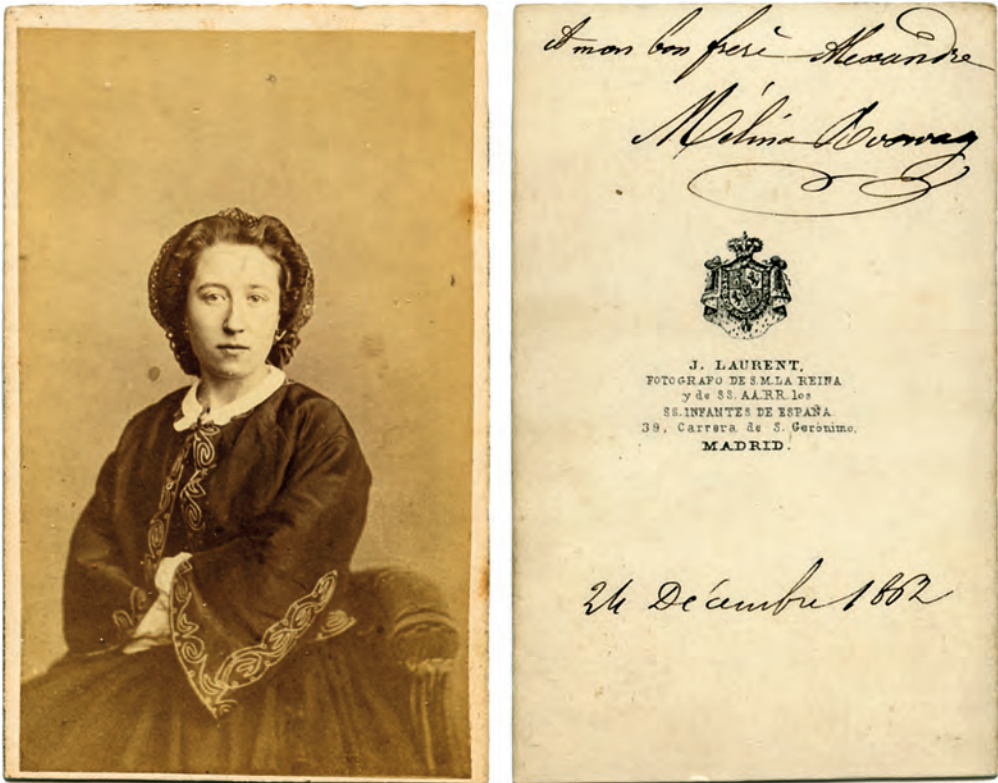 A mon bon frère Alexandre
Mélina Roswag
J. LAURENT,
FOTOGRAFO DE S.M.LA REINA
y de SS. AA.RR. los
SS. INFANTES DE ESPAÑA.
39, Carrera de S. Gerónimo,
MADRID.
24 Décembre 1862